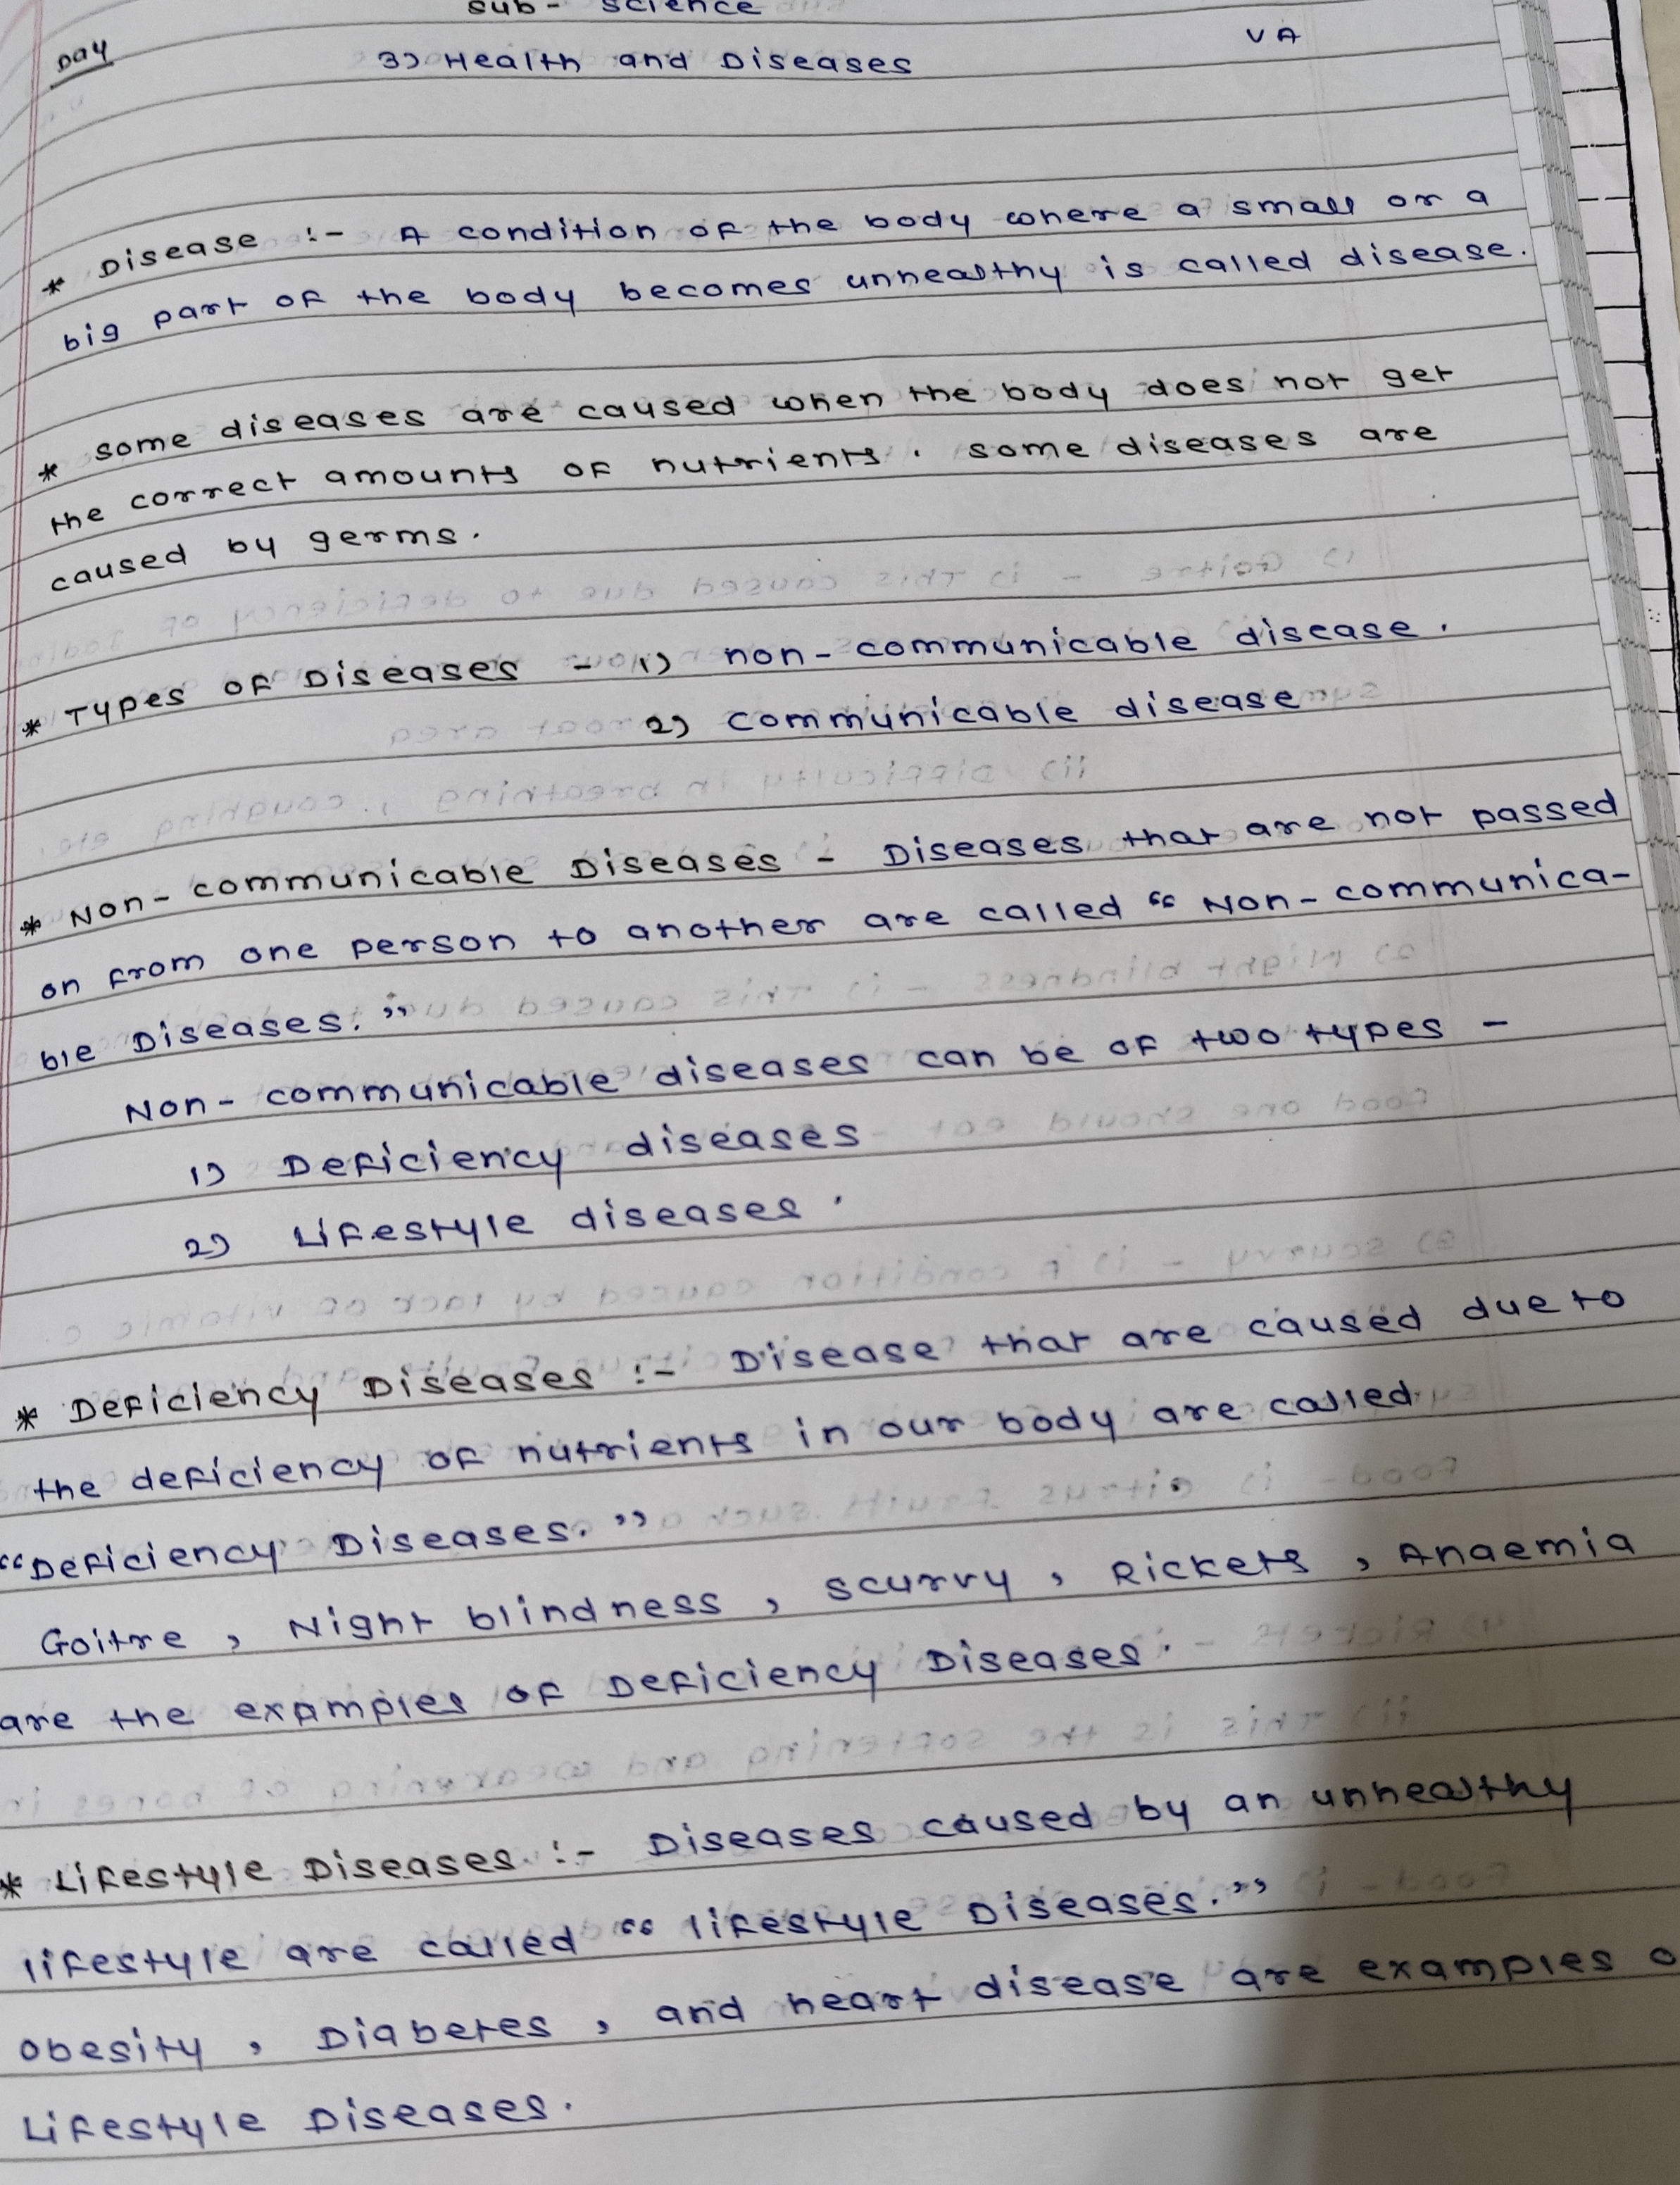 Sub - Science
Day
VA
3) Health and Diseases
* Disease :- A condition of the body where a small or a
big part of the body becomes unhealthy is called disease.
* some diseases are caused when the body does not get
the correct amounts of nutrients. some diseases are
caused by germs.
* Types of Diseases - 1) non-communicable disease.
2) communicable disease
* Non-communicable Diseases - Diseases that are not passed
on from one person to another are called "Non-communica-
ble Diseases."
Non-communicable diseases can be of two types -
1) Deficiency diseases
2) Lifestyle diseases.
* Deficiency Diseases :- Disease that are caused due to
the deficiency of nutrients in our body are called
"Deficiency Diseases."
Goitre, Night blindness, scurvy, Rickets, Anaemia
are the examples of Deficiency Diseases.
* Lifestyle Diseases :- Diseases caused by an unhealthy
lifestyle are called "lifestyle Diseases."
Obesity, Diabetes, and heart disease are examples o
Lifestyle Diseases.